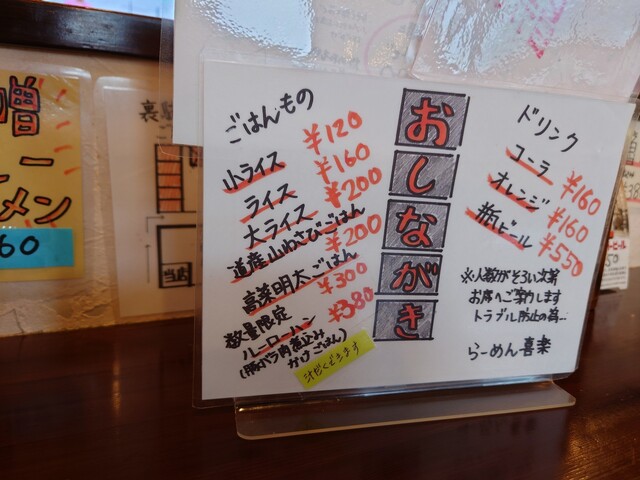 おしながき
ごはんもの
小ライス ¥120
ライス ¥160
大ライス ¥200
道産山わさびごはん ¥200
高菜明太ごはん ¥300
数量限定
ルーローハン ¥380
(豚バラ肉煮込み
かけごはん)
汁だくできます
ドリンク
コーラ ¥160
オレンジ ¥160
瓶ビール ¥550
※人数がそろい次第
お席へご案内します
トラブル防止の為…
らーめん喜楽
噌
ー
メン
60
裏
当店